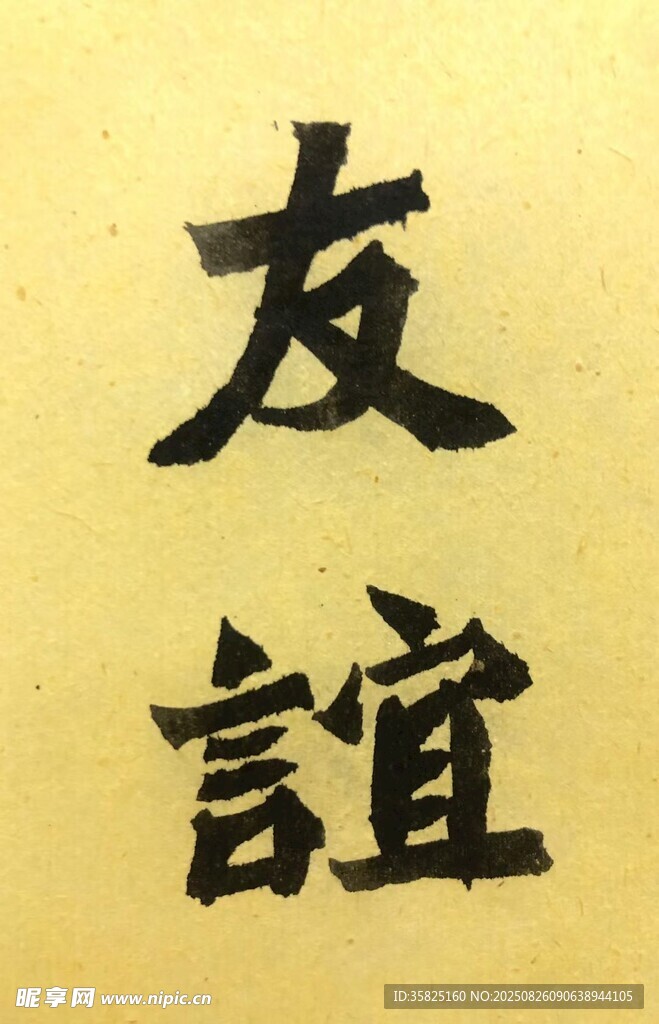 友
誼
昵享网 www.nipic.cn
ID:35825160 NO:20250826090638944105